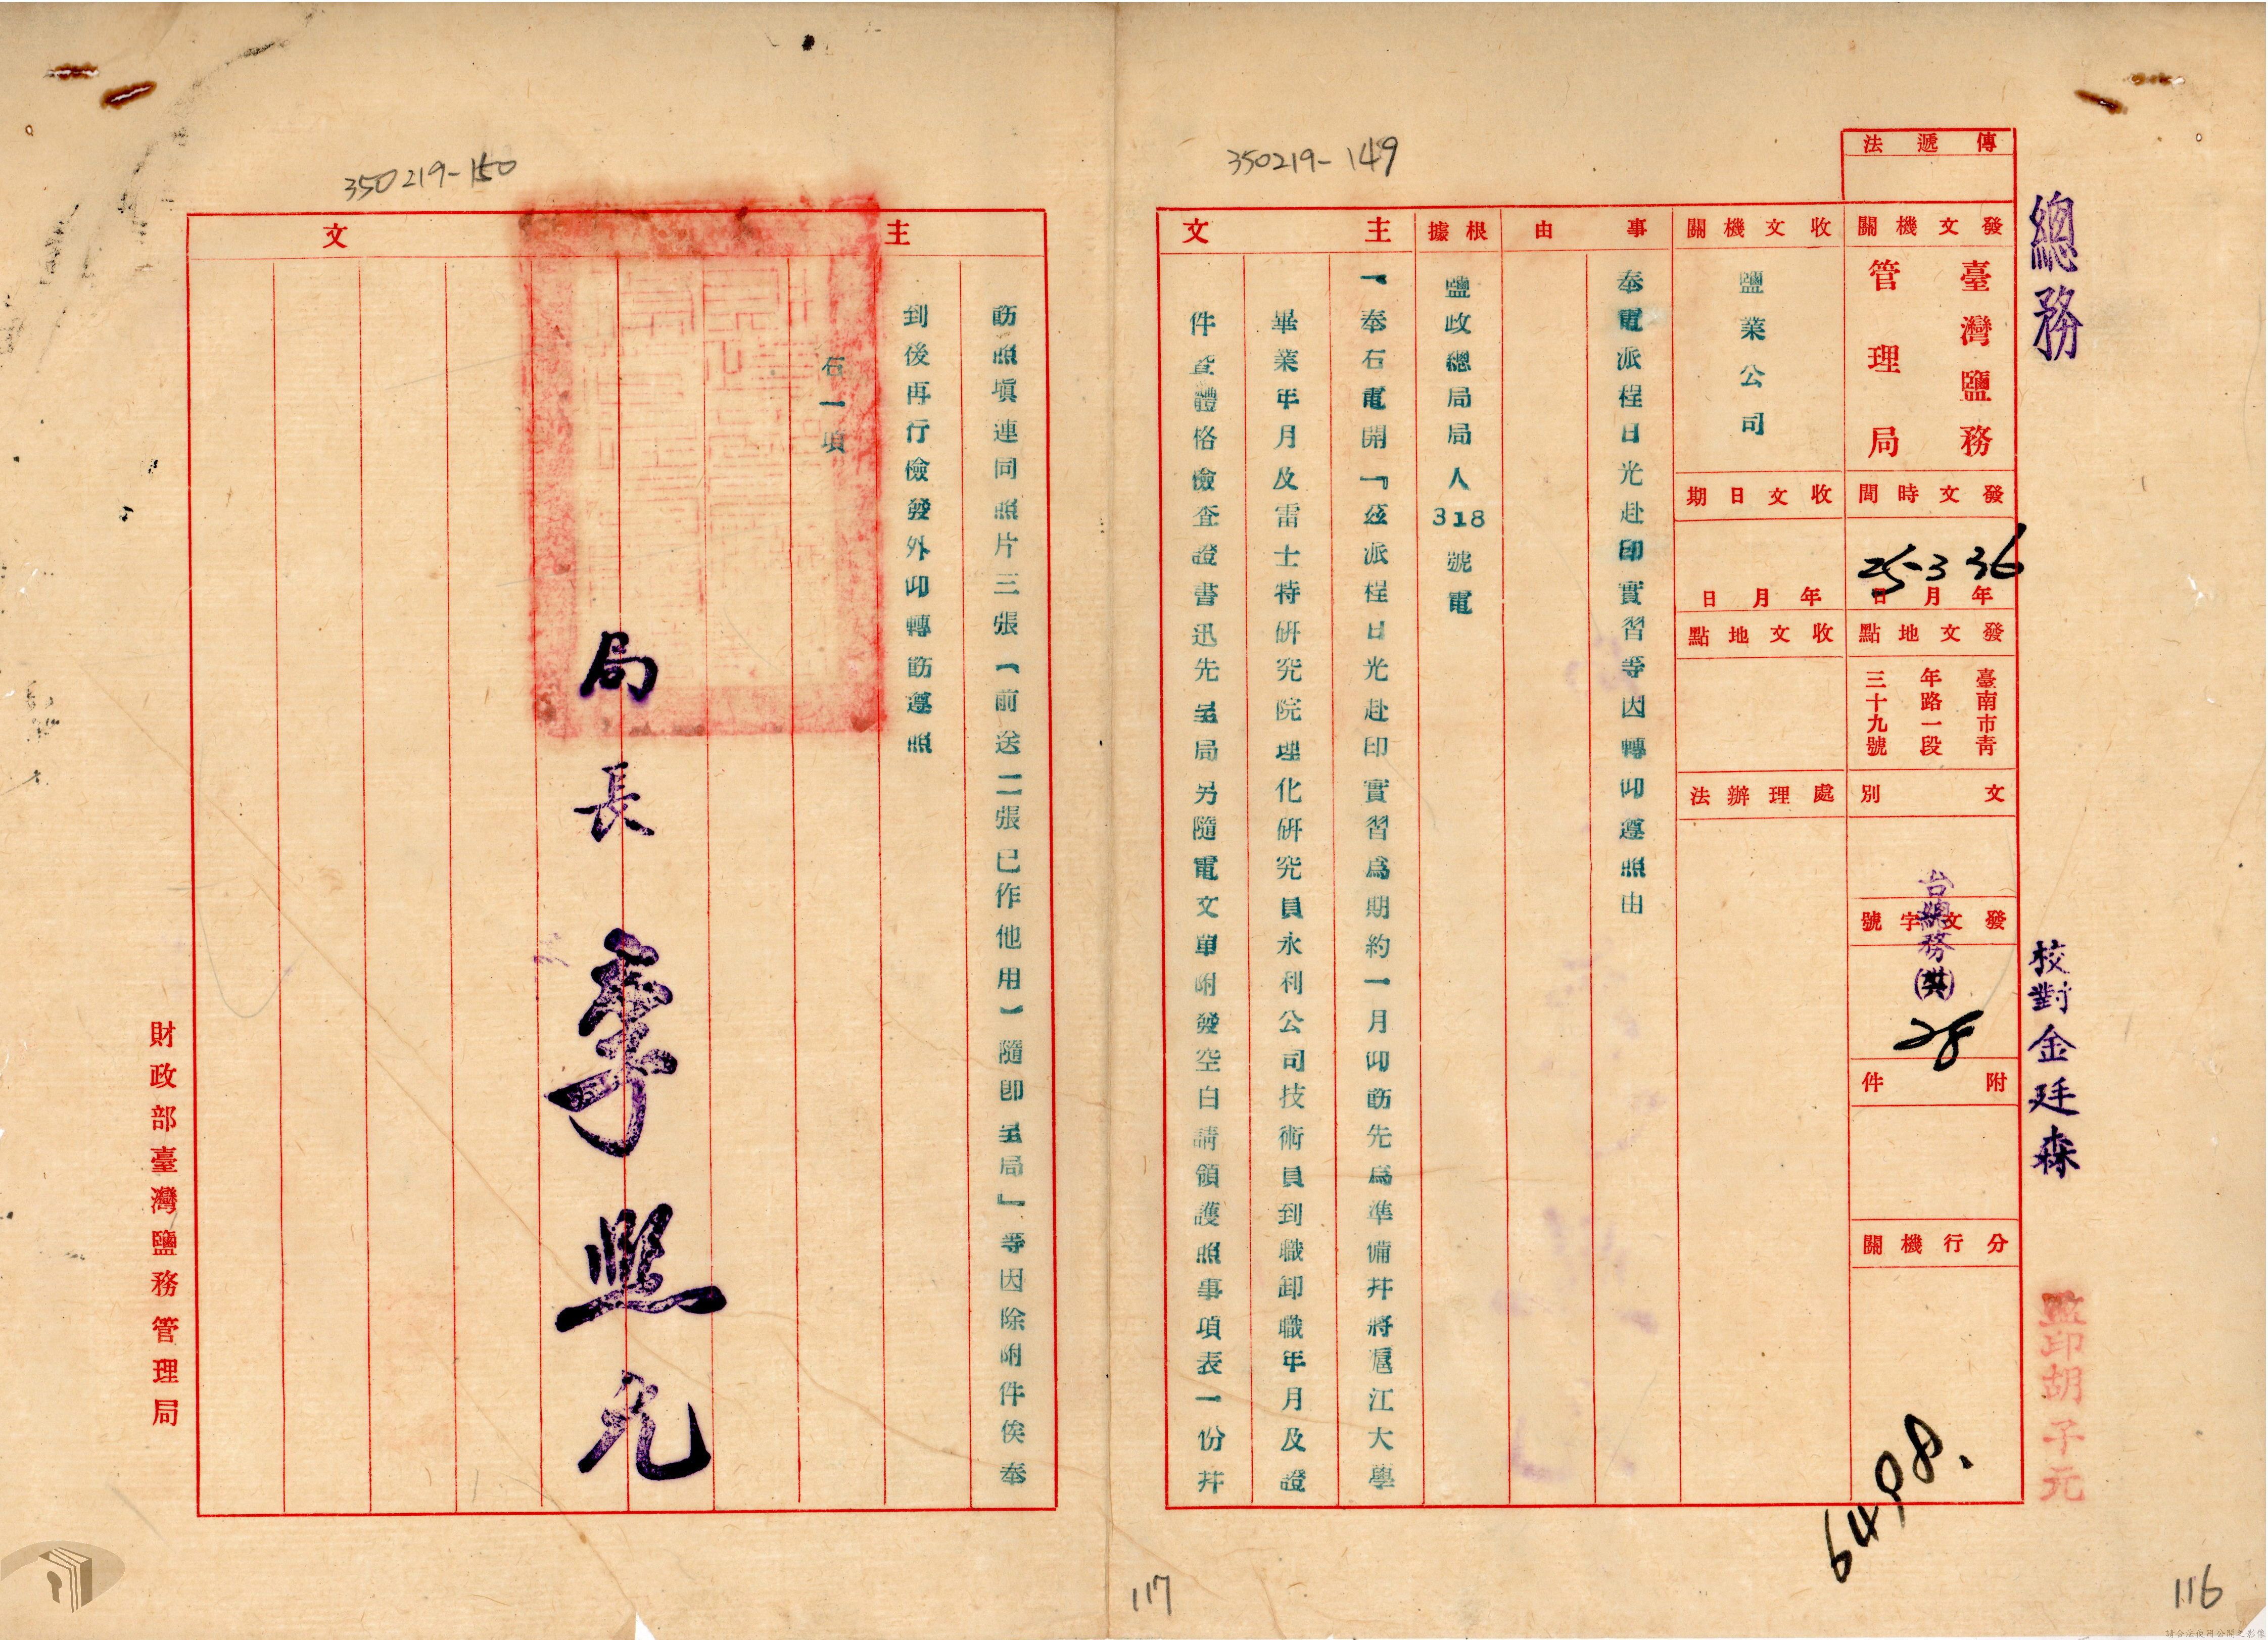 總務
校對金廷森
監印胡子元
傳遞法
發文機關
臺灣鹽務
管理局
發文時間
36年3月25日
發文地點
臺南市青
年路一段
三十九號
文別
發文字號
台總務(人)
28
附件
分行機關
6498.
收文機關
鹽業公司
收文日期
年月日
收文地點
處理辦法
事由
奉電派程日光赴印實習等因轉仰遵照由
根據
鹽政總局局人318號電
主文
一、奉右電開『茲派程日光赴印實習爲期約一月仰飭先爲準備幷將滬江大學
畢業年月及雷士特硏究院理化硏究員永利公司技術員到職卸職年月及證
件並體格儉查證書迅先呈局另隨電文單附發空白請領護照事項表一份幷
350219-149
116
主文
飭照塡連同照片三張（前送二張已作他用）隨卽呈局』等因除附件俟奉
到後再行儉發外仰轉飭遵照
右一項
局長李熙允
財政部臺灣鹽務管理局
350219-150
117
請合法使用公開之影像